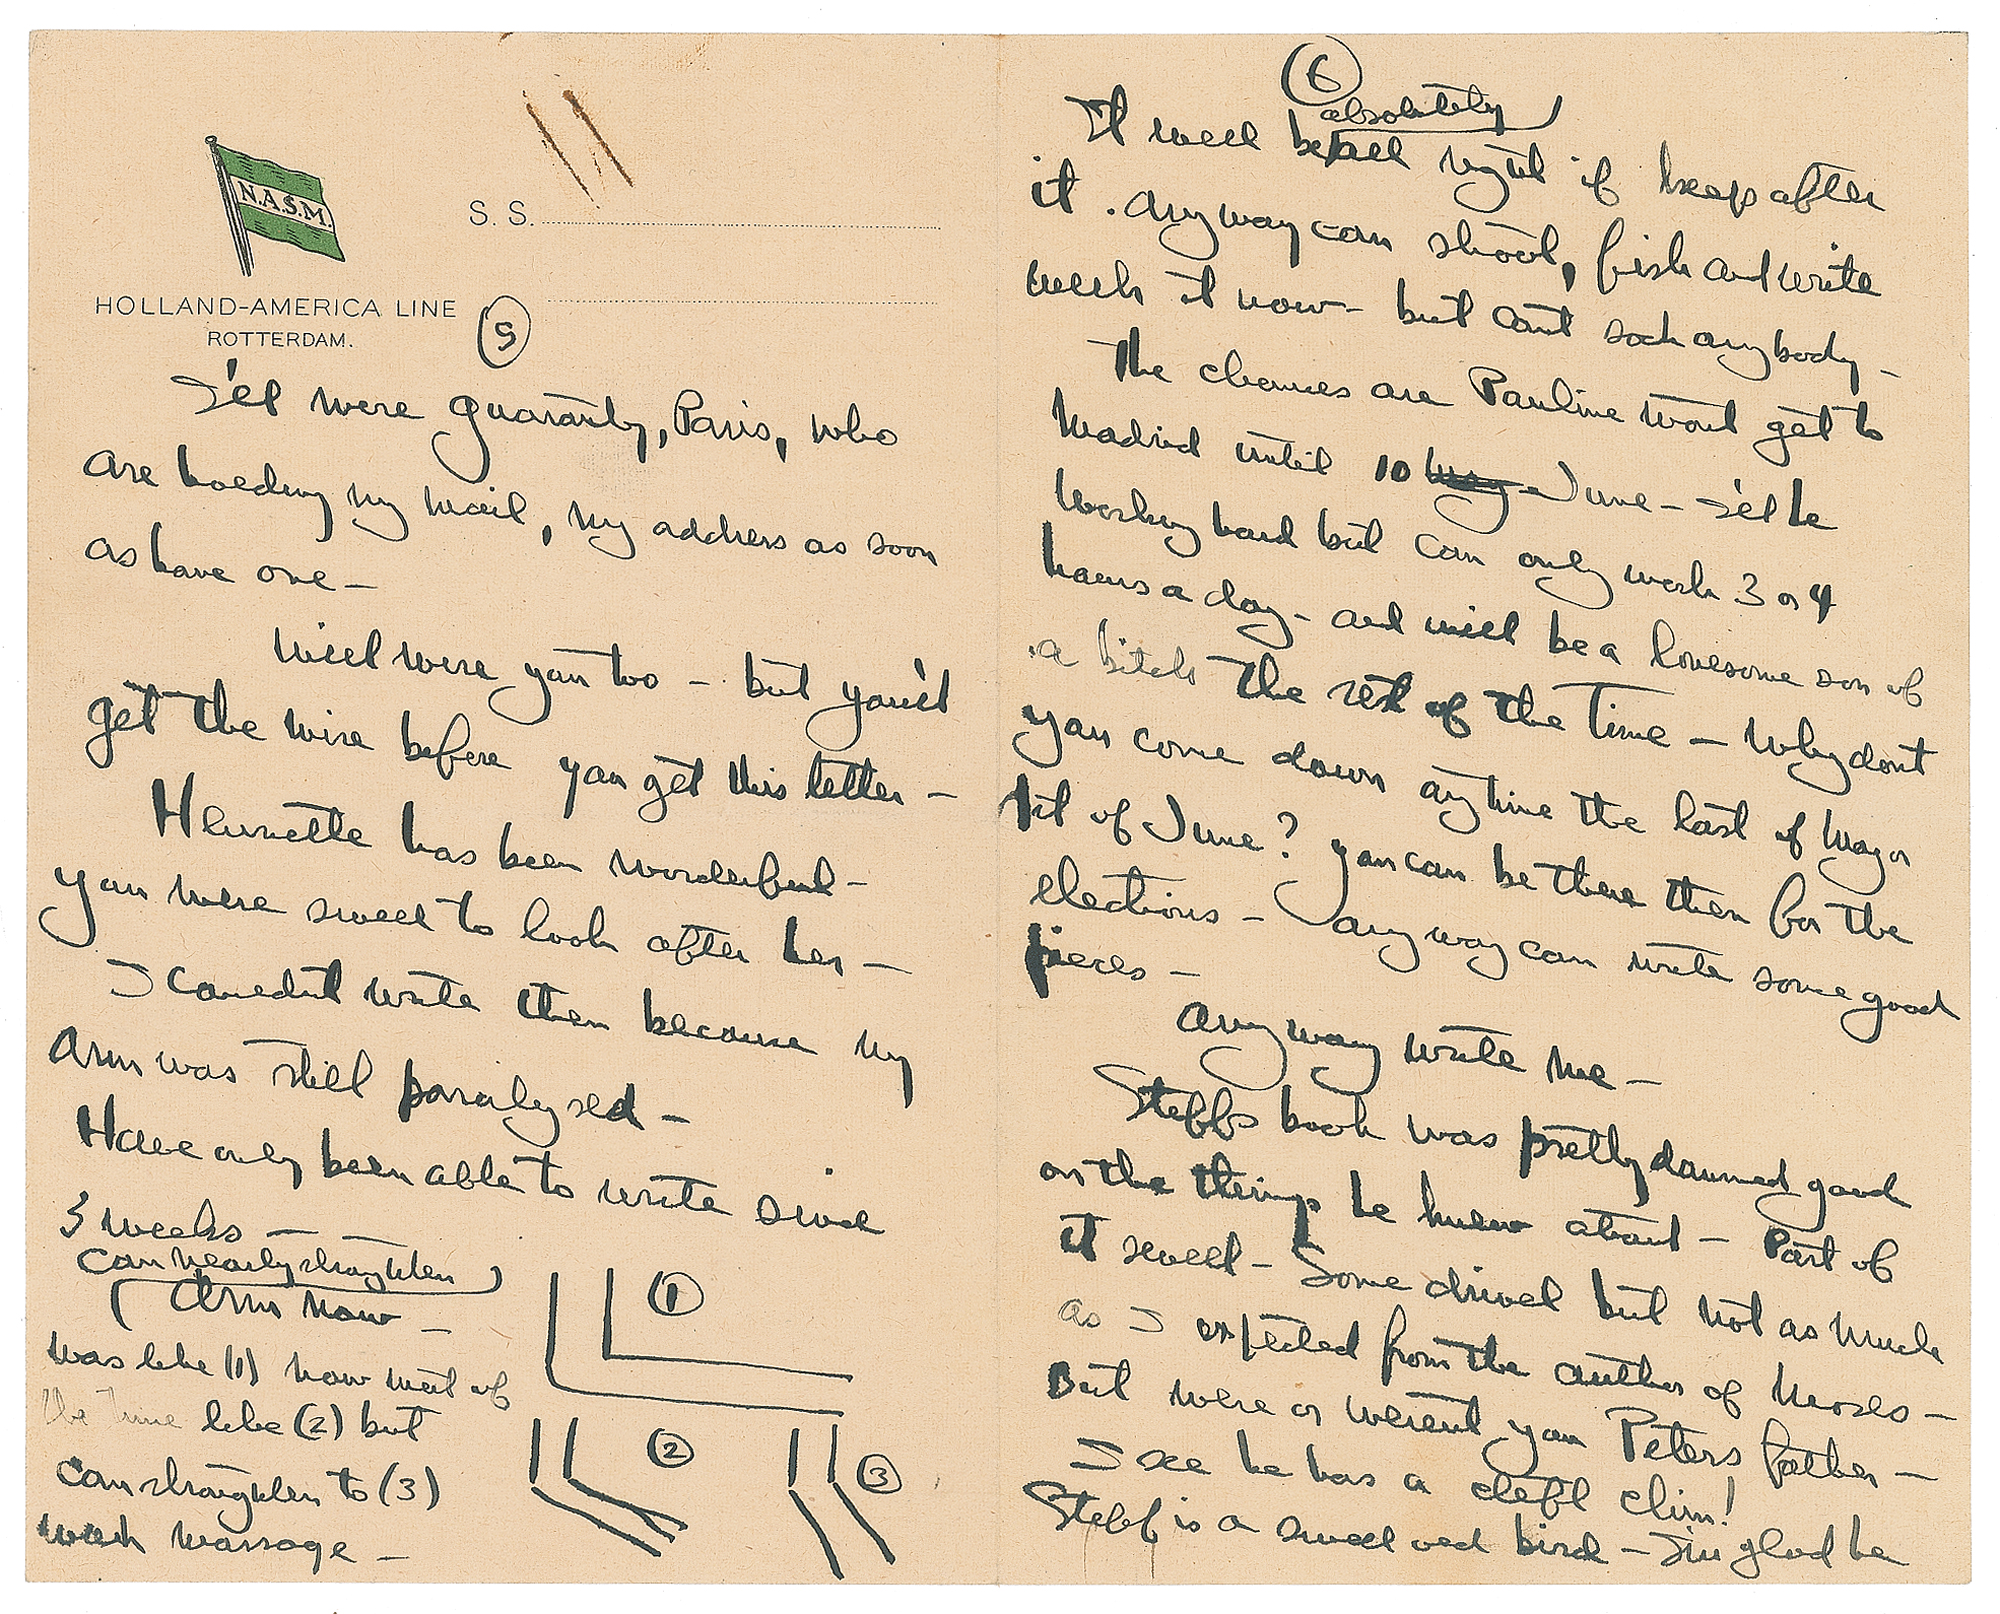 N.A.S.M.
S. S.
HOLLAND-AMERICA LINE
ROTTERDAM.
(5)
I'll wire guaranty, Paris, who
are holding my mail, my address as soon
as have one —
Will wire you too — but you'll
get the wire before you get this letter —
Henriette has been wonderful —
you were sweet to look after her —
I couldnt write then because my
arm was still paralyzed —
Have only been able to write since
3 weeks —
can nearly straighten
arm now —
was like (1) now most of
the time like (2) but
can straighten to (3)
with massage —
(1)
(2)
(3)
(6)
absolutely
It will be all right if keep after
it. Anyway can shoot, fish and write
with it now — but cant sock anybody —
The chances are Pauline wont get to
Madrid until 10 May June — I'll be
working hard but can only work 3 or 4
hours a day — and will be a lonesome son of
a bitch the rest of the time — Why dont
you come down anytime the last of May or
1st of June? you can be there then for the
elections — Anyway can write some good
pieces —
Anyway write me —
Steffs book was pretty damned good
on the things he knew about — Part of
it swell — Some drivel but not as much
as I expected from the author of Moses —
But were or werent you Peters father —
I see he has a cleft chin!
Steff is a swell old bird — I'm glad he